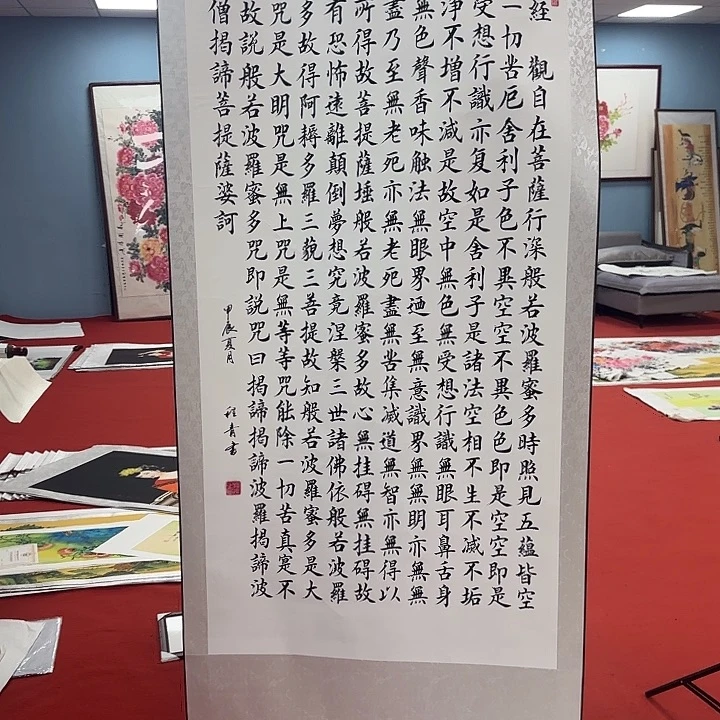 経 觀自在菩薩行深般若波羅蜜多時照見五蘊皆空
一切苦厄舍利子色不異空空不異色色即是空空即是
受想行識亦复如是舍利子是諸法空相不生不滅不垢
淨不增不减是故空中無色無受想行識無眼耳鼻舌身
無色聲香味触法無眼界廼至無意識界無無明亦無無
盡乃至無老死亦無老死盡無苦集滅道無智亦無得以
所得故菩提薩埵般若波羅蜜多故心無挂碍無挂碍故
有恐怖遠離顛倒夢想究竟涅槃三世諸佛依般若波羅
多故得阿耨多羅三藐三菩提故知般若波羅蜜多是大
咒是大明咒是無上咒是無等等咒能除一切苦真寔不
故說般若波羅蜜多咒即説咒曰揭諦揭諦波羅揭諦波
僧揭諦菩提薩婆訶
甲辰夏月
程青書